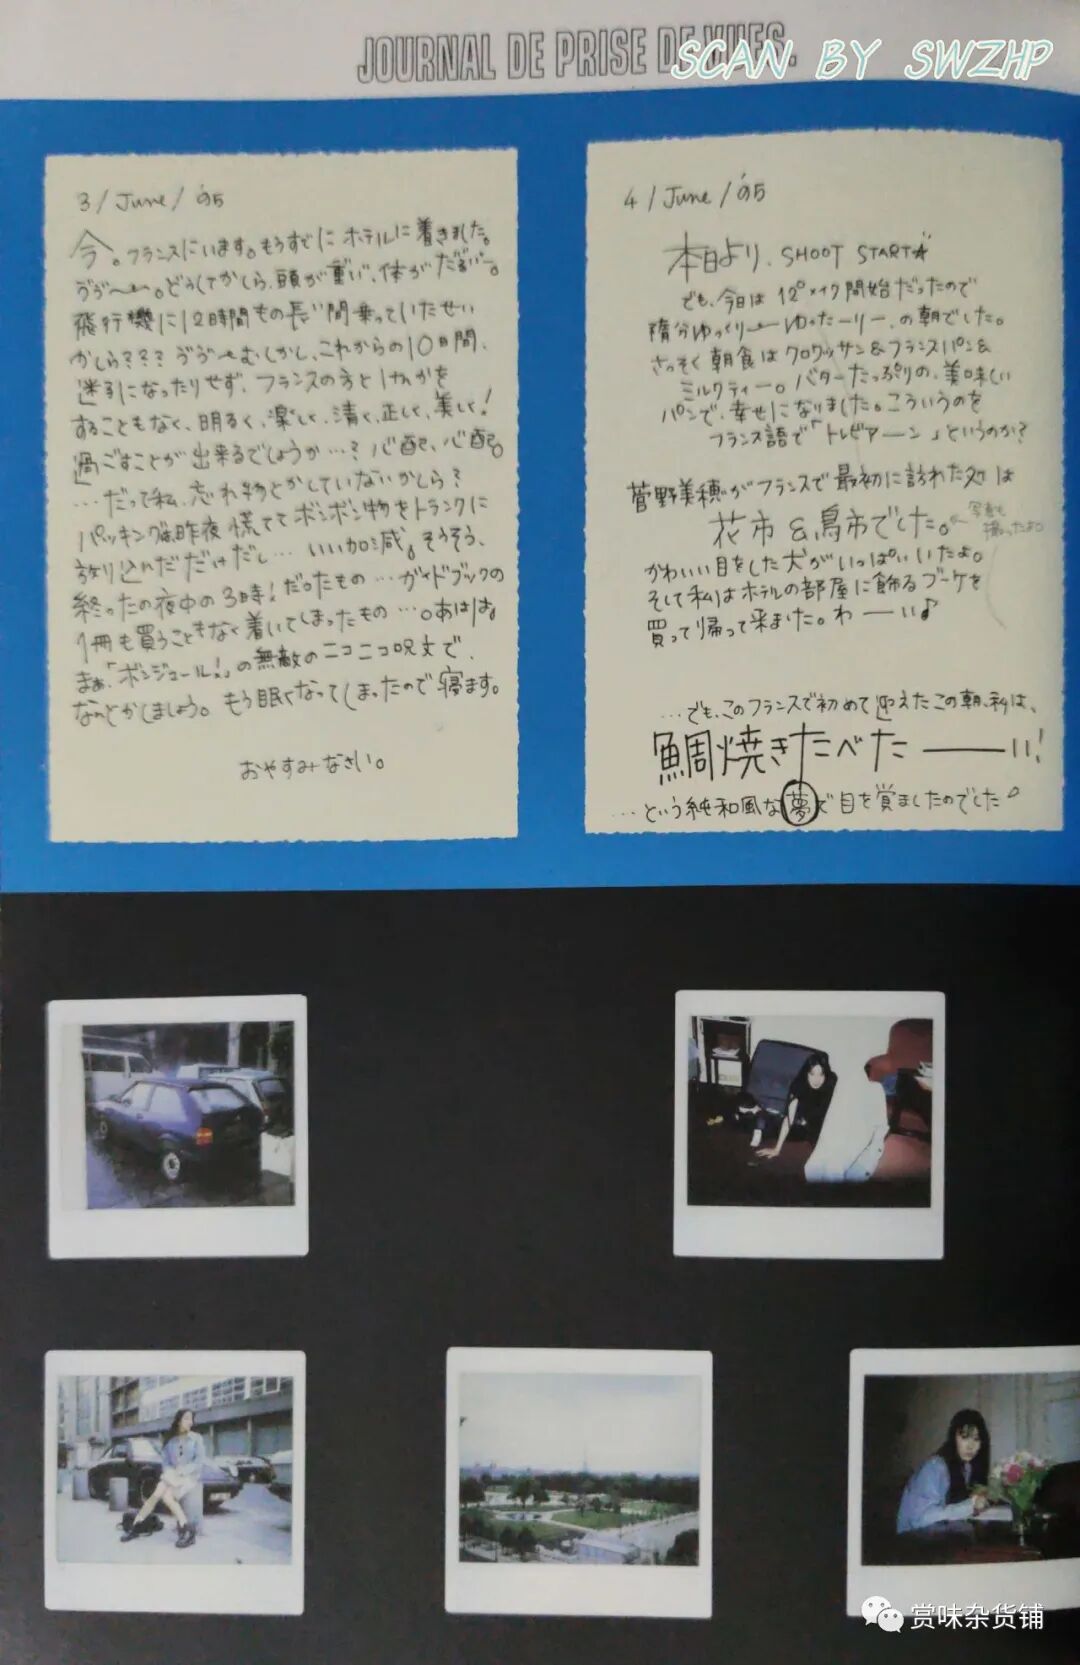 JOURNAL DE PRISE DE VUES.
SCAN BY SWZHP
3/June/'95
今。フランスにいます。もうすでにホテルに着きました。
ゔゔ〜〜。どうしてかしら、頭が重い、体がだるい〜。
飛行機に12時間もの長い間乗っていたせい
かしら???ゔゔ〜むしかし、これからの10日間、
迷子になったりせず、フランスの方とけんかを
することもなく、明るく、楽しく、清く、正しく、美しく!
過ごすことが出来るでしょうか…?心配、心配。
…だって私、忘れ物とかしていないかしら?
パッキングは昨夜慌ててボンボン物をトランクに
放り込んだだけだし…いい加減。そうそう、
終ったの夜中の3時!だったもの…ガイドブックの
1冊も買うこともなく着いてしまったもの…。あはは。
まぁ、「ボンジュール!」の無敵のニコニコ呪文で、
なんとかしましょう。もう眠くなってしまったので寝ます。
おやすみなさい。
4/June/'95
本日より、SHOOT START☆
でも、今日は12°メイク開始だったので
随分ゆっくりーゆったーりー、の朝でした。
さっそく朝食はクロワッサン&フランスパン&
ミルクティー。バターたっぷりの、美味しい
パンで、幸せになりました。こういうのを
フランス語で「トレビアーン」というのか?
菅野美穂がフランスで最初に訪れた処は
花市&鳥市でした。←写真も
撮ったよ
かわいい目をした犬がいっぱいいたよ。
そして私はホテルの部屋に飾るブーケを
買って帰って来ました。わーい♪
…でも、このフランスで初めて迎えたこの朝、私は、
鯛焼きたべたーーい!
…という純和風な夢で目を覚ましたのでした。
赏味杂货铺